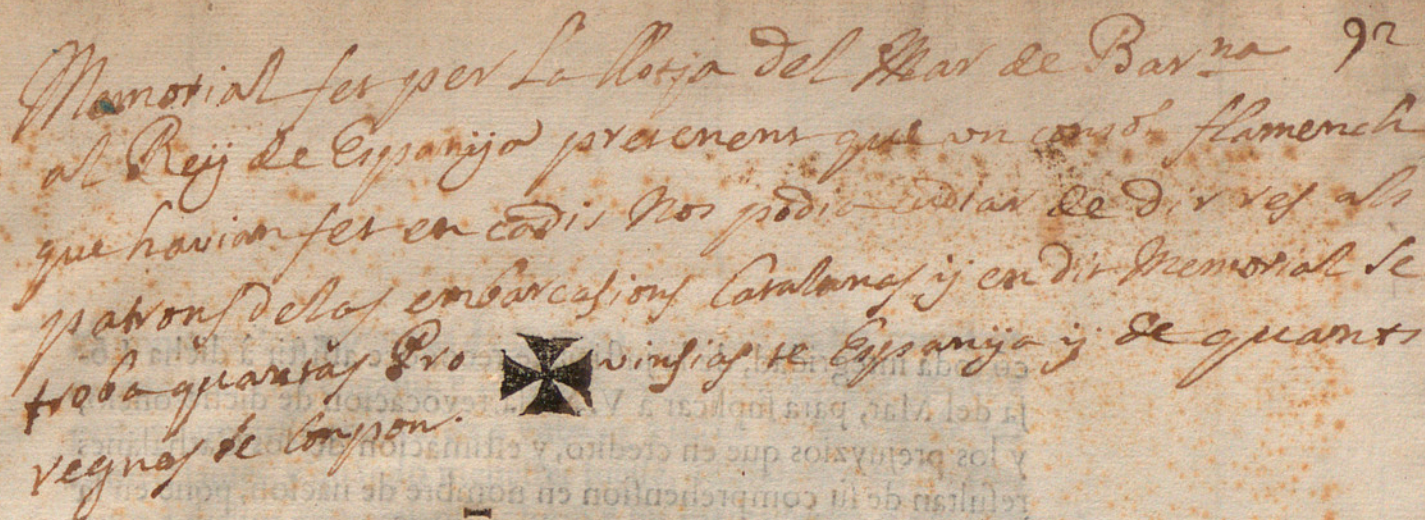 Memorial fet per La llotja del Mar de Barna 92
al Reÿ de Espanÿa pretenent que un consol flamench
que havian fet en cadis Nos podia cuidar de dir res als
patrons delas embarcasions Catalanas ÿ en dit Memorial se
troba quantas Pro vinsias te Espanÿa ÿ de quants
regnas se Conpon.